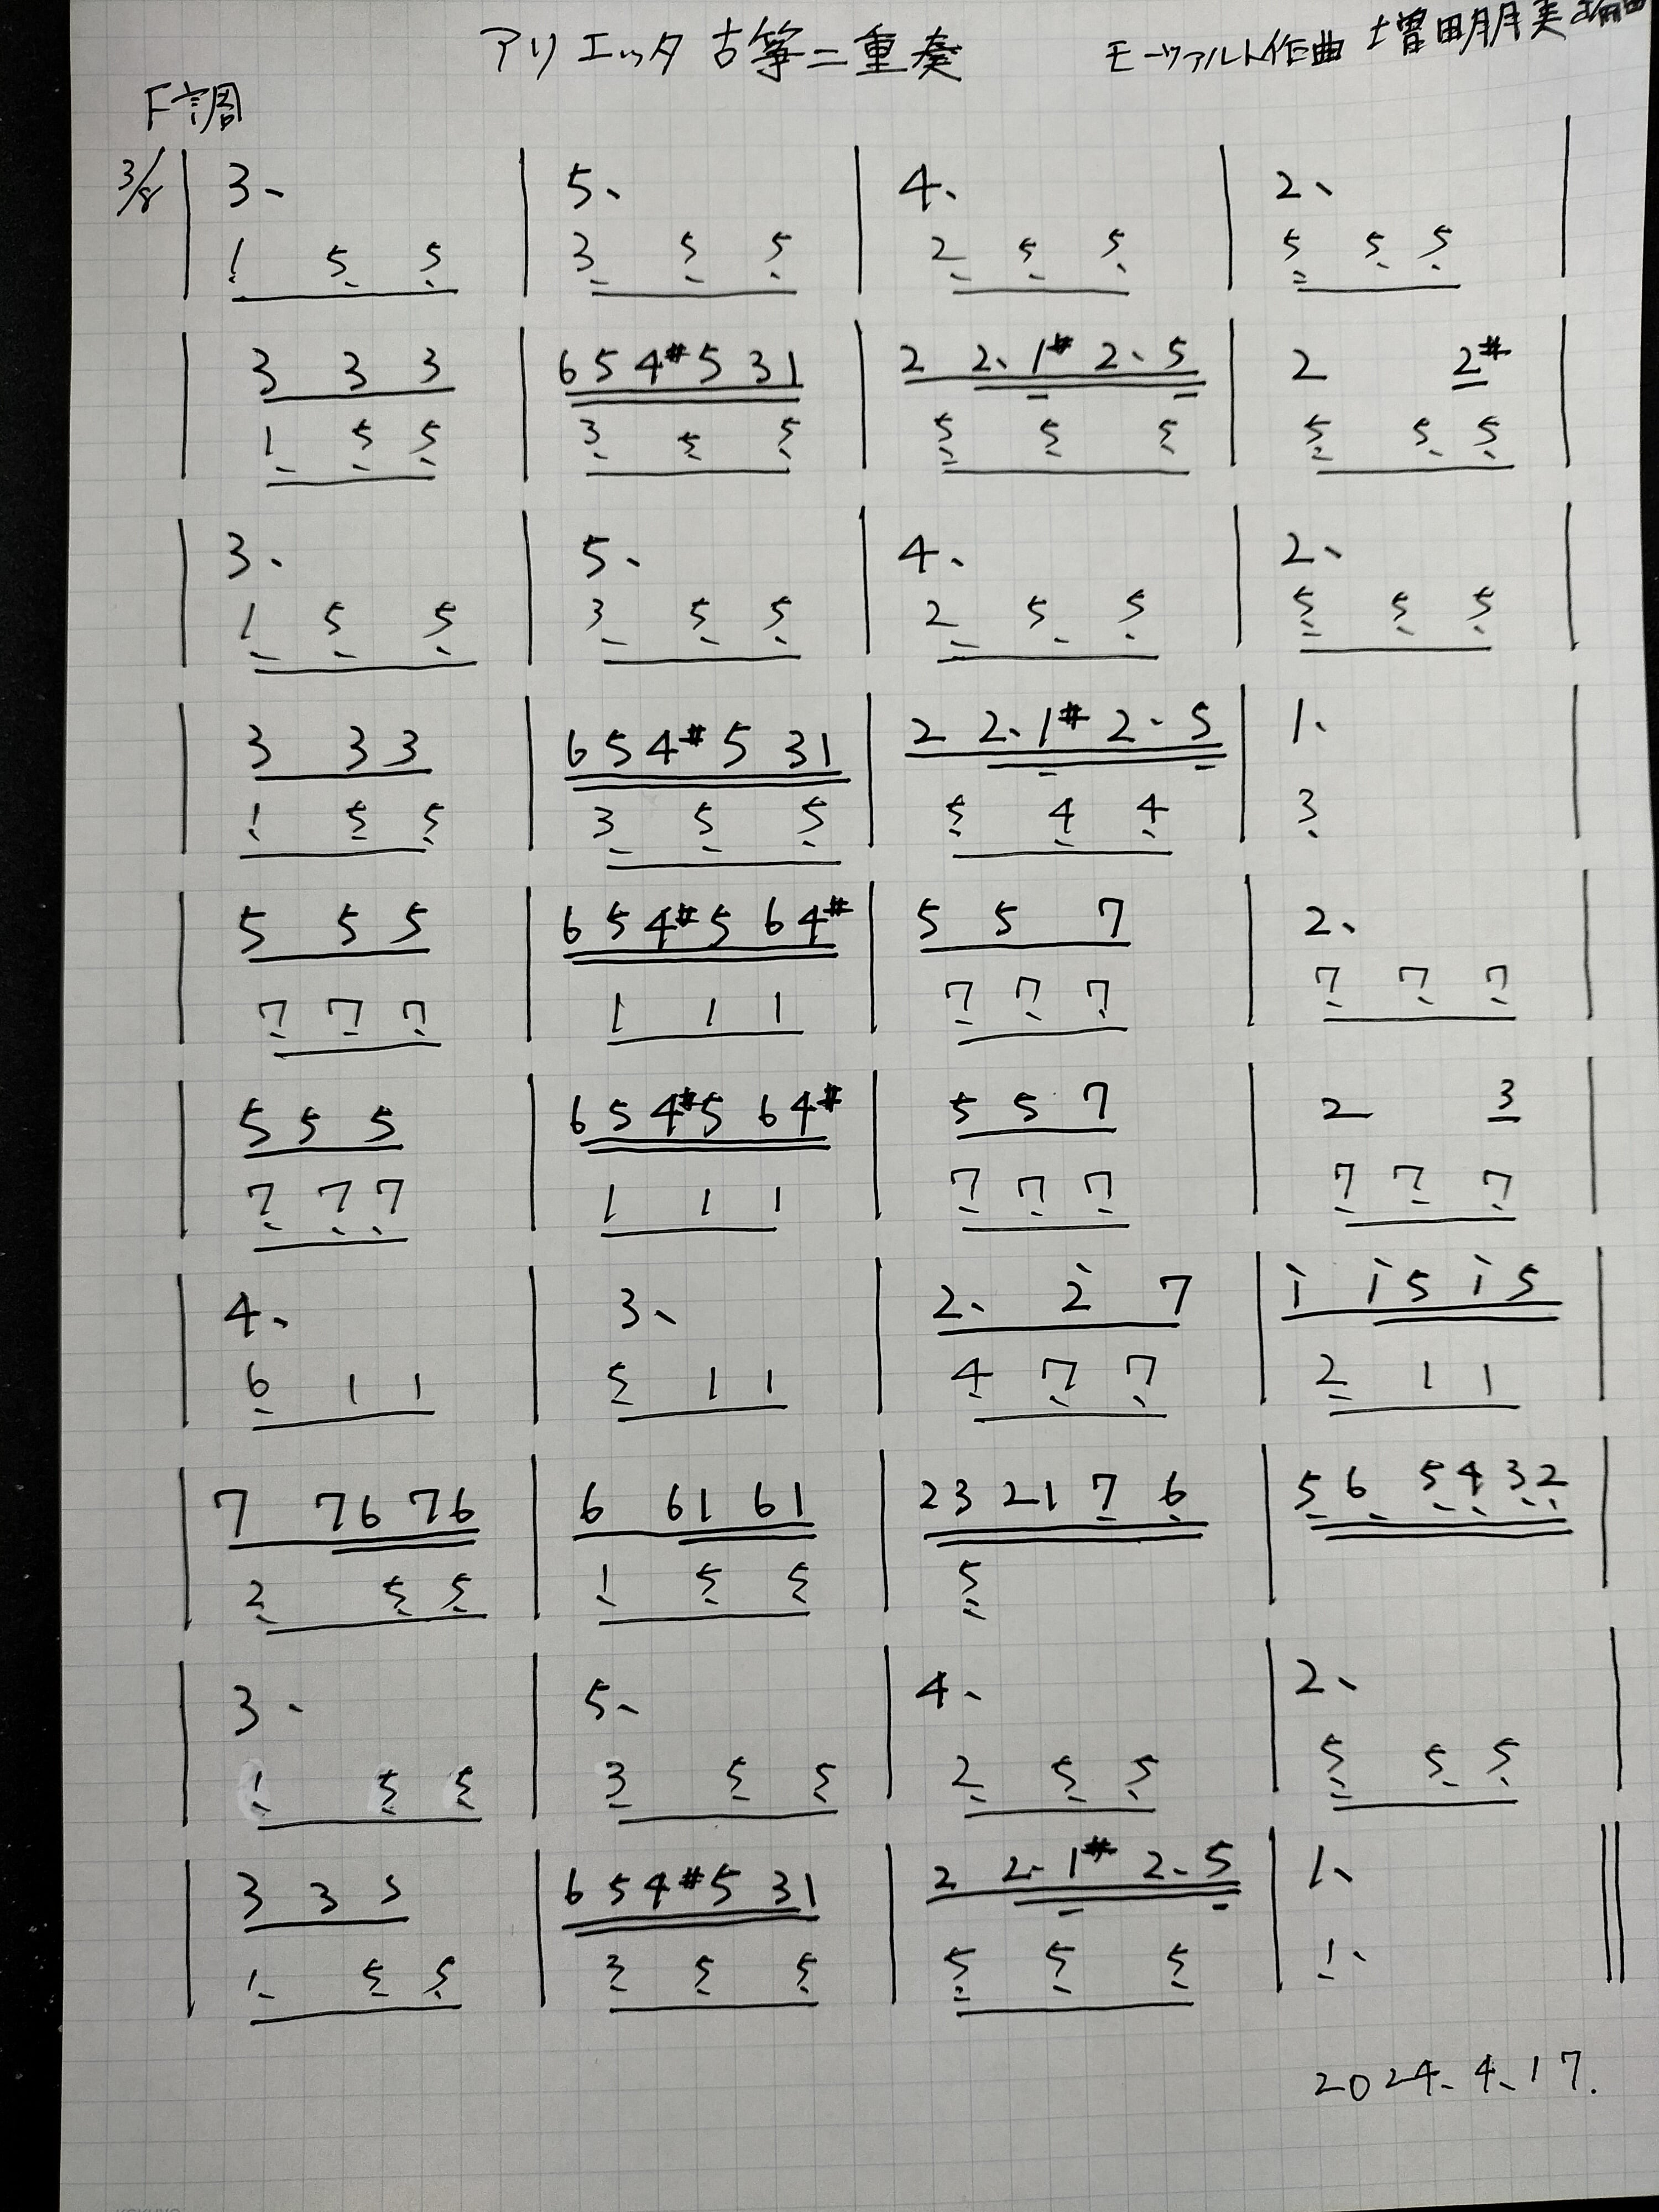 アリエッタ 古箏二重奏 モーツァルト作曲 増田朋美編曲
F調
3/8 | 3、 | 5、 | 4、 | 2、 |
1 5 5 | 3 5 5 | 2 5 5 | 5 5 5
| 3 3 3 | 6 5 4# 5 3 1 | 2 2、1# 2、5 | 2 2# |
1 5 5 | 3 5 5 | 5 5 5 | 5 5 5
| 3、 | 5、 | 4、 | 2、 |
1 5 5 | 3 5 5 | 2 5 5 | 5 5 5
| 3 3 3 | 6 5 4# 5 3 1 | 2 2、1# 2、5 | 1、 |
1 5 5 | 3 5 5 | 5 4 4 | 3
| 5 5 5 | 6 5 4# 5 6 4# | 5 5 7 | 2、 |
7 7 7 | 1 1 1 | 7 7 7 | 7 7 7
| 5 5 5 | 6 5 4# 5 6 4# | 5 5 7 | 2 3 |
7 7 7 | 1 1 1 | 7 7 7 | 7 7 7
| 4、 | 3、 | 2、 2 7 | 1 1 5 1 5 |
6 1 1 | 5 1 1 | 4 7 7 | 2 1 1
| 7 7 6 7 6 | 6 6 1 6 1 | 2 3 2 1 7 6 | 5 6 5 4 3 2 |
2 5 5 | 1 5 5 | 5 |
| 3、 | 5、 | 4、 | 2、 |
1 5 5 | 3 5 5 | 2 5 5 | 5 5 5
| 3 3 3 | 6 5 4# 5 3 1 | 2 2、1# 2、5 | 1、 ||
1 5 5 | 3 5 5 | 5 5 5 | 1、
2024、4、17.